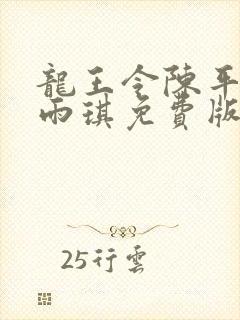 龍王令陳平
雨琪免費版
25行雲